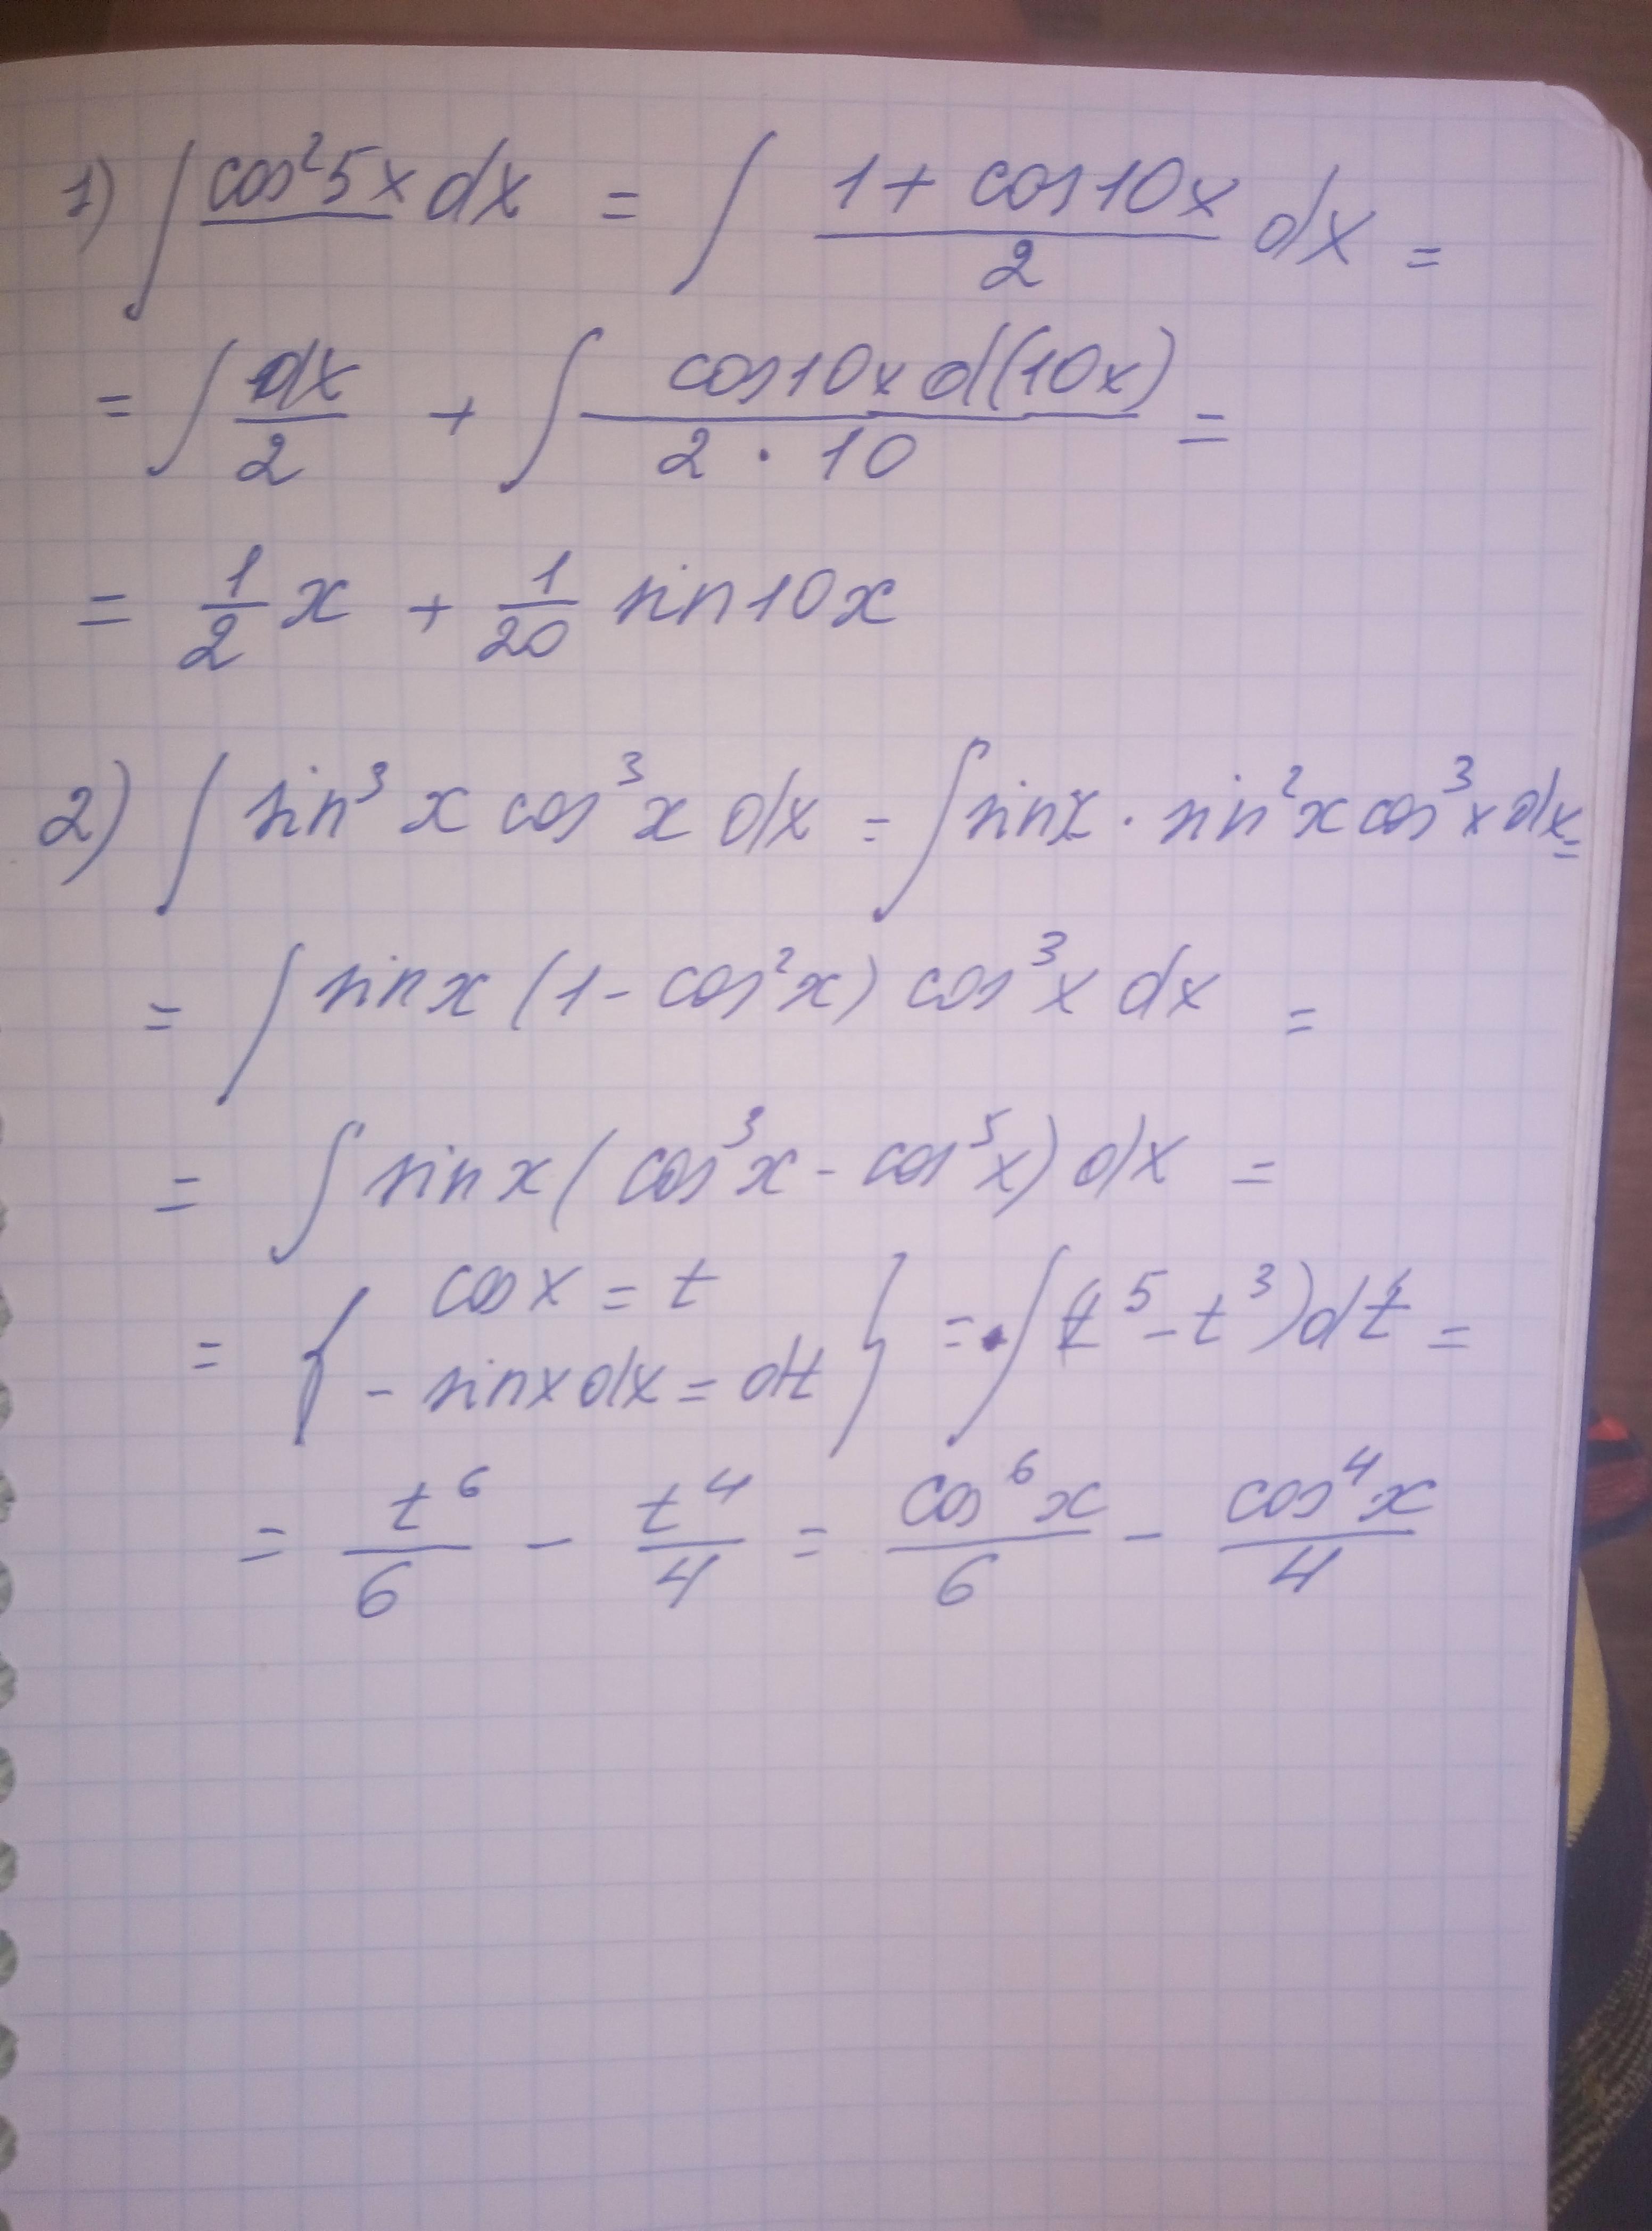 1) ∫ cos²5x dx = ∫ (1 + cos10x)/2 dx =
= ∫ dx/2 + ∫ cos10x d(10x)/(2 · 10) =
= 1/2 x + 1/20 sin10x
2) ∫ sin³x cos³x dx = ∫ sinx · sin²x cos³x dx =
= ∫ sinx (1 - cos²x) cos³x dx =
= ∫ sinx (cos³x - cos⁵x) dx =
= { cosx = t
- sinx dx = dt } = ∫ (t⁵ - t³) dt =
= t⁶/6 - t⁴/4 = cos⁶x/6 - cos⁴x/4